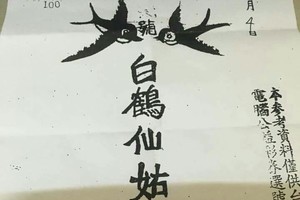 100
月4
號
白鶴仙姑
本參考資料僅供台
電腦公益彩券選號